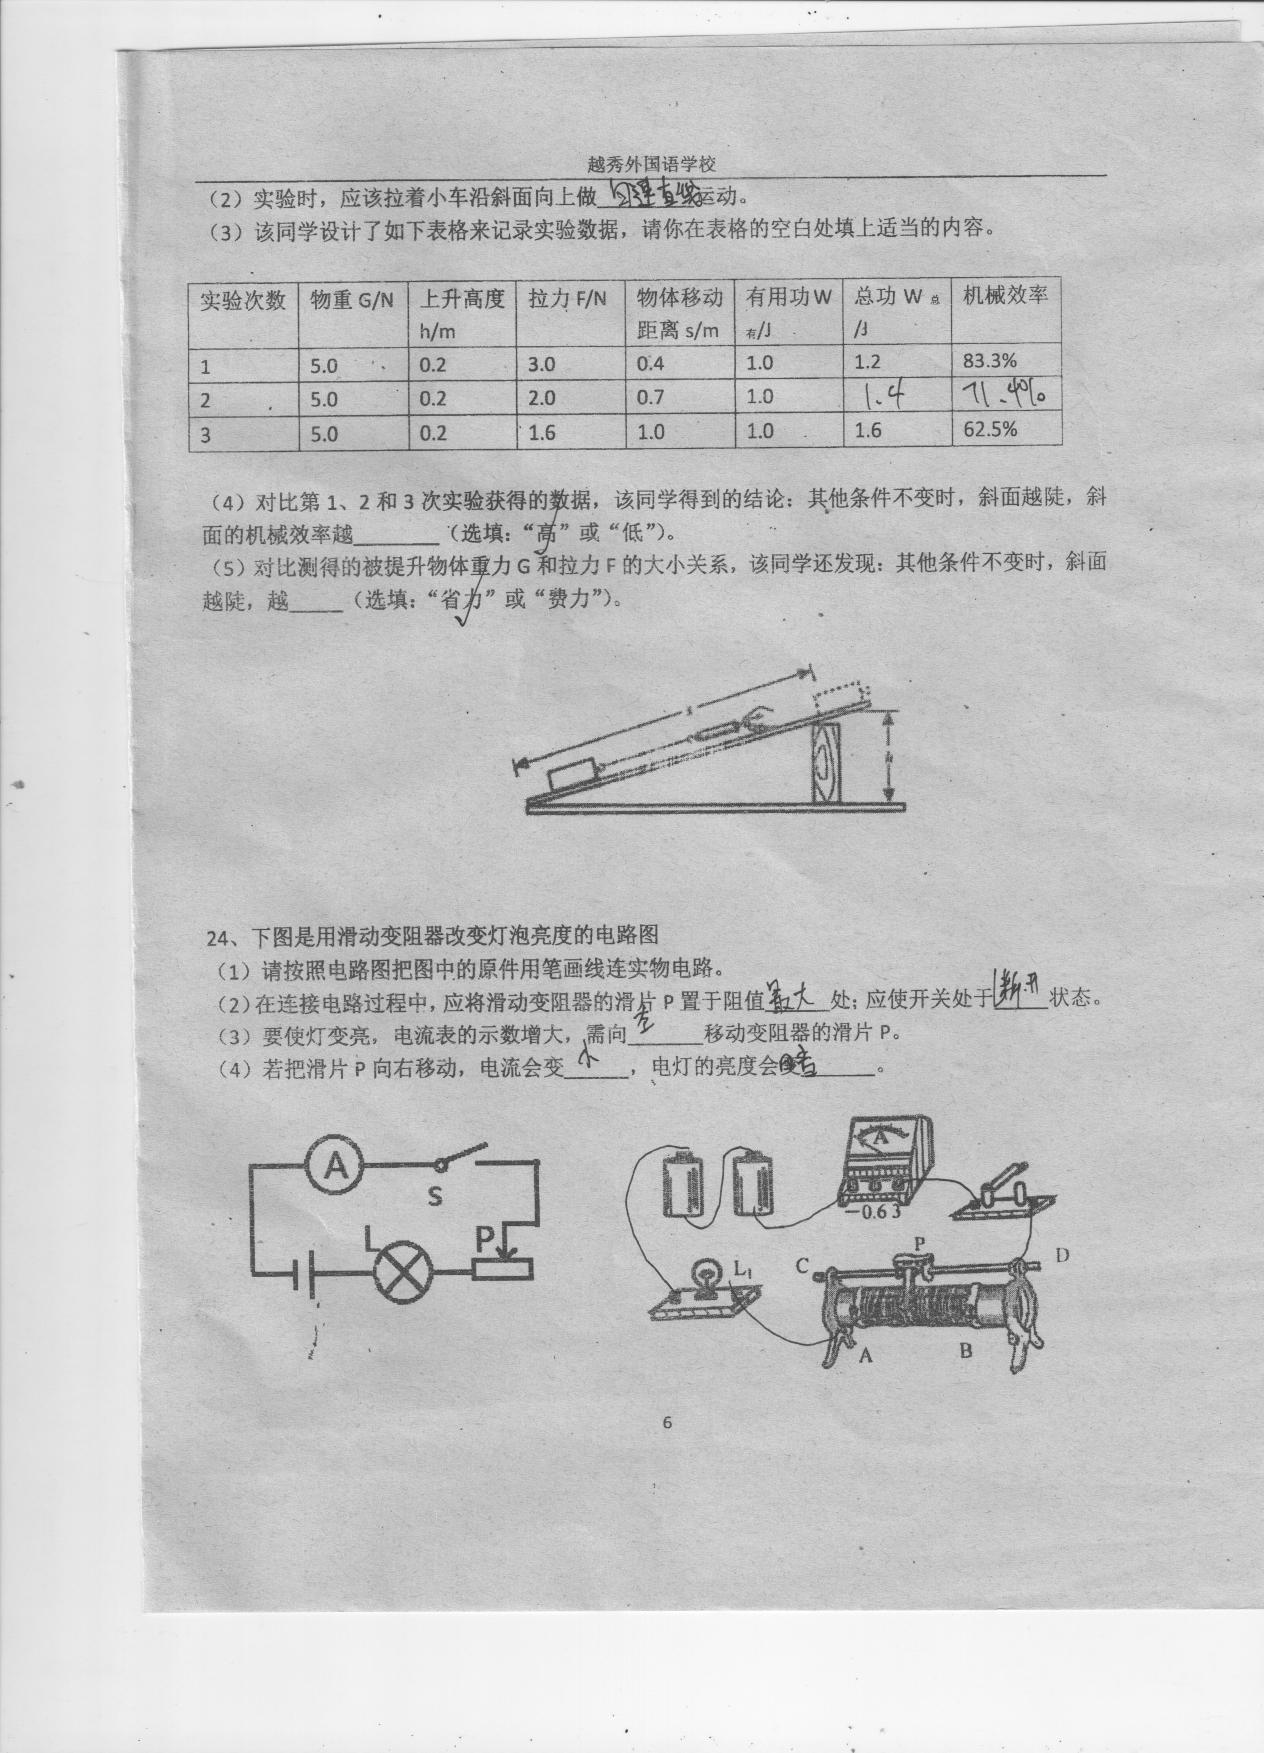 越秀外国语学校
（2）实验时，应该拉着小车沿斜面向上做匀速直线运动。
（3）该同学设计了如下表格来记录实验数据，请你在表格的空白处填上适当的内容。
实验次数 物重 G/N 上升高度 h/m 拉力 F/N 物体移动距离 s/m 有用功 W有/J 总功 W总/J 机械效率
1 5.0 0.2 3.0 0.4 1.0 1.2 83.3%
2 5.0 0.2 2.0 0.7 1.0 1.4 71.4%
3 5.0 0.2 1.6 1.0 1.0 1.6 62.5%
（4）对比第 1、2 和 3 次实验获得的数据，该同学得到的结论：其他条件不变时，斜面越陡，斜
面的机械效率越________（选填：“高”或“低”）。
（5）对比测得的被提升物体重力 G 和拉力 F 的大小关系，该同学还发现：其他条件不变时，斜面
越陡，越_____（选填：“省力”或“费力”）。
s
h
24、下图是用滑动变阻器改变灯泡亮度的电路图
（1）请按照电路图把图中的原件用笔画线连实物电路。
（2）在连接电路过程中，应将滑动变阻器的滑片 P 置于阻值最大处；应使开关处于断开状态。
（3）要使灯变亮，电流表的示数增大，需向左移动变阻器的滑片 P。
（4）若把滑片 P 向右移动，电流会变小，电灯的亮度会变暗。
A
S
L
P
A
−0.6 3
L1
C
P
D
A
B
6